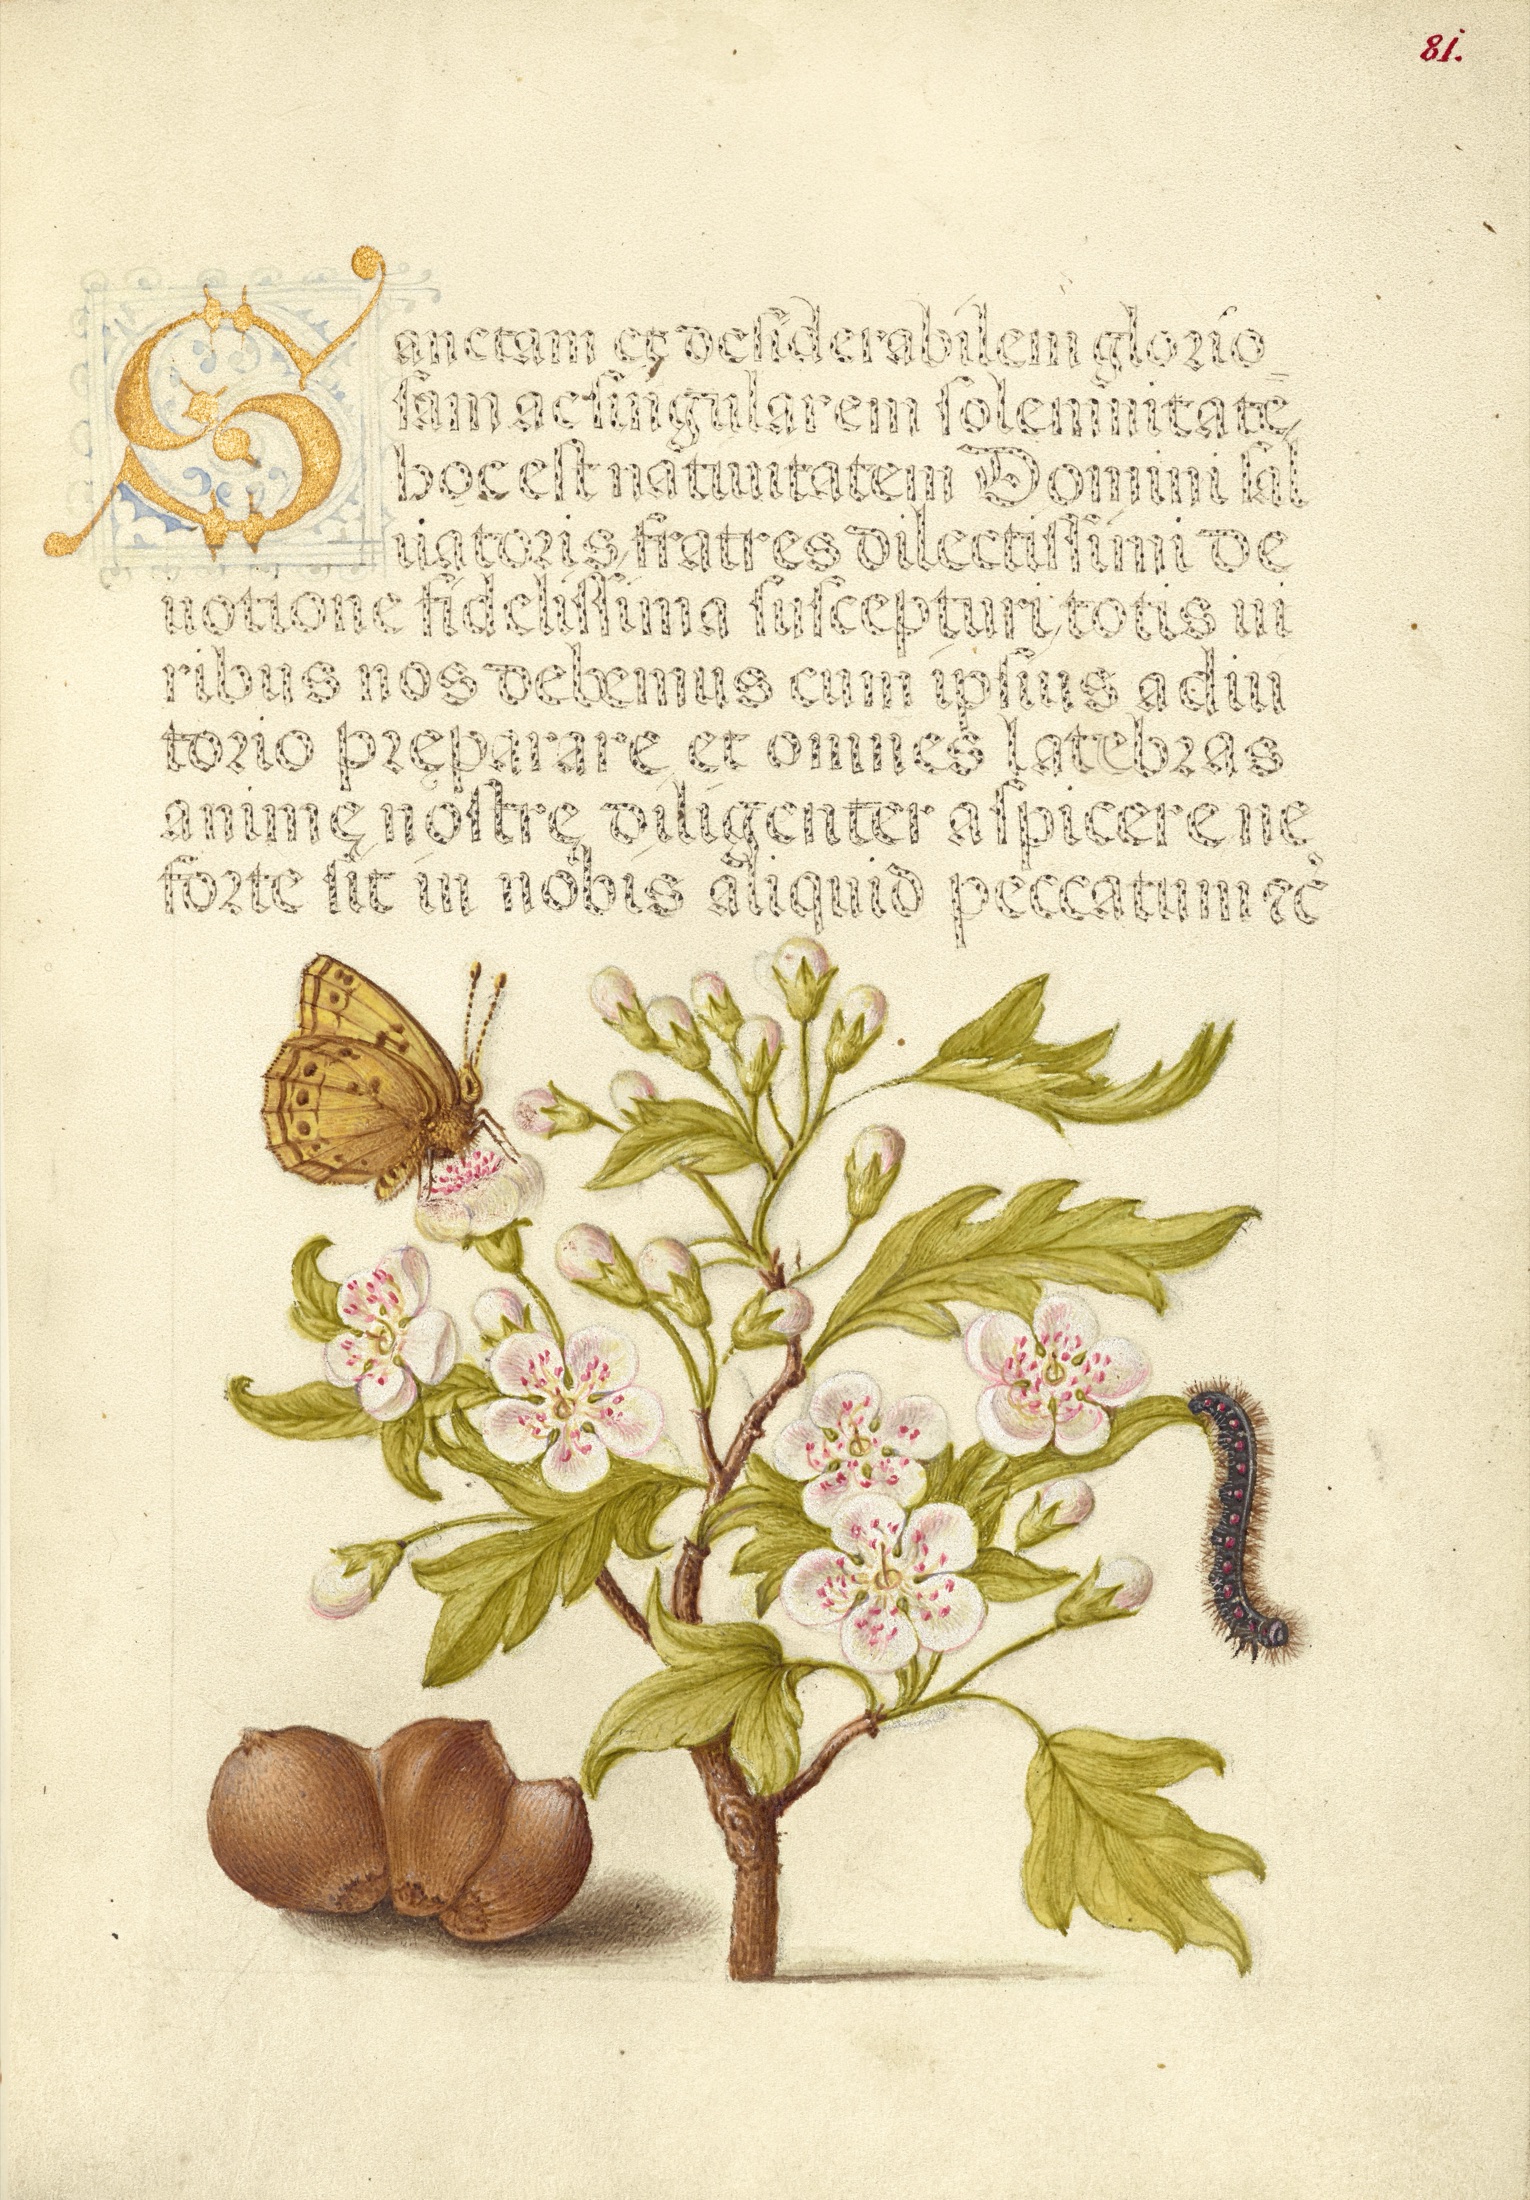 81.
Sanctam et desiderabilem glorio
sam ac singularem solemnitatē,
hoc est natiuitatem Domini sal
uatoris, fratres dilectissimi de
uotione fidelissima suscepturi, totis ui
ribus nos debemus cum ipsius adiu
torio pręparare, et omnes latebras
animę nostrę diligenter aspicere ne
forte sit in nobis aliquid peccatum ⁊c̊